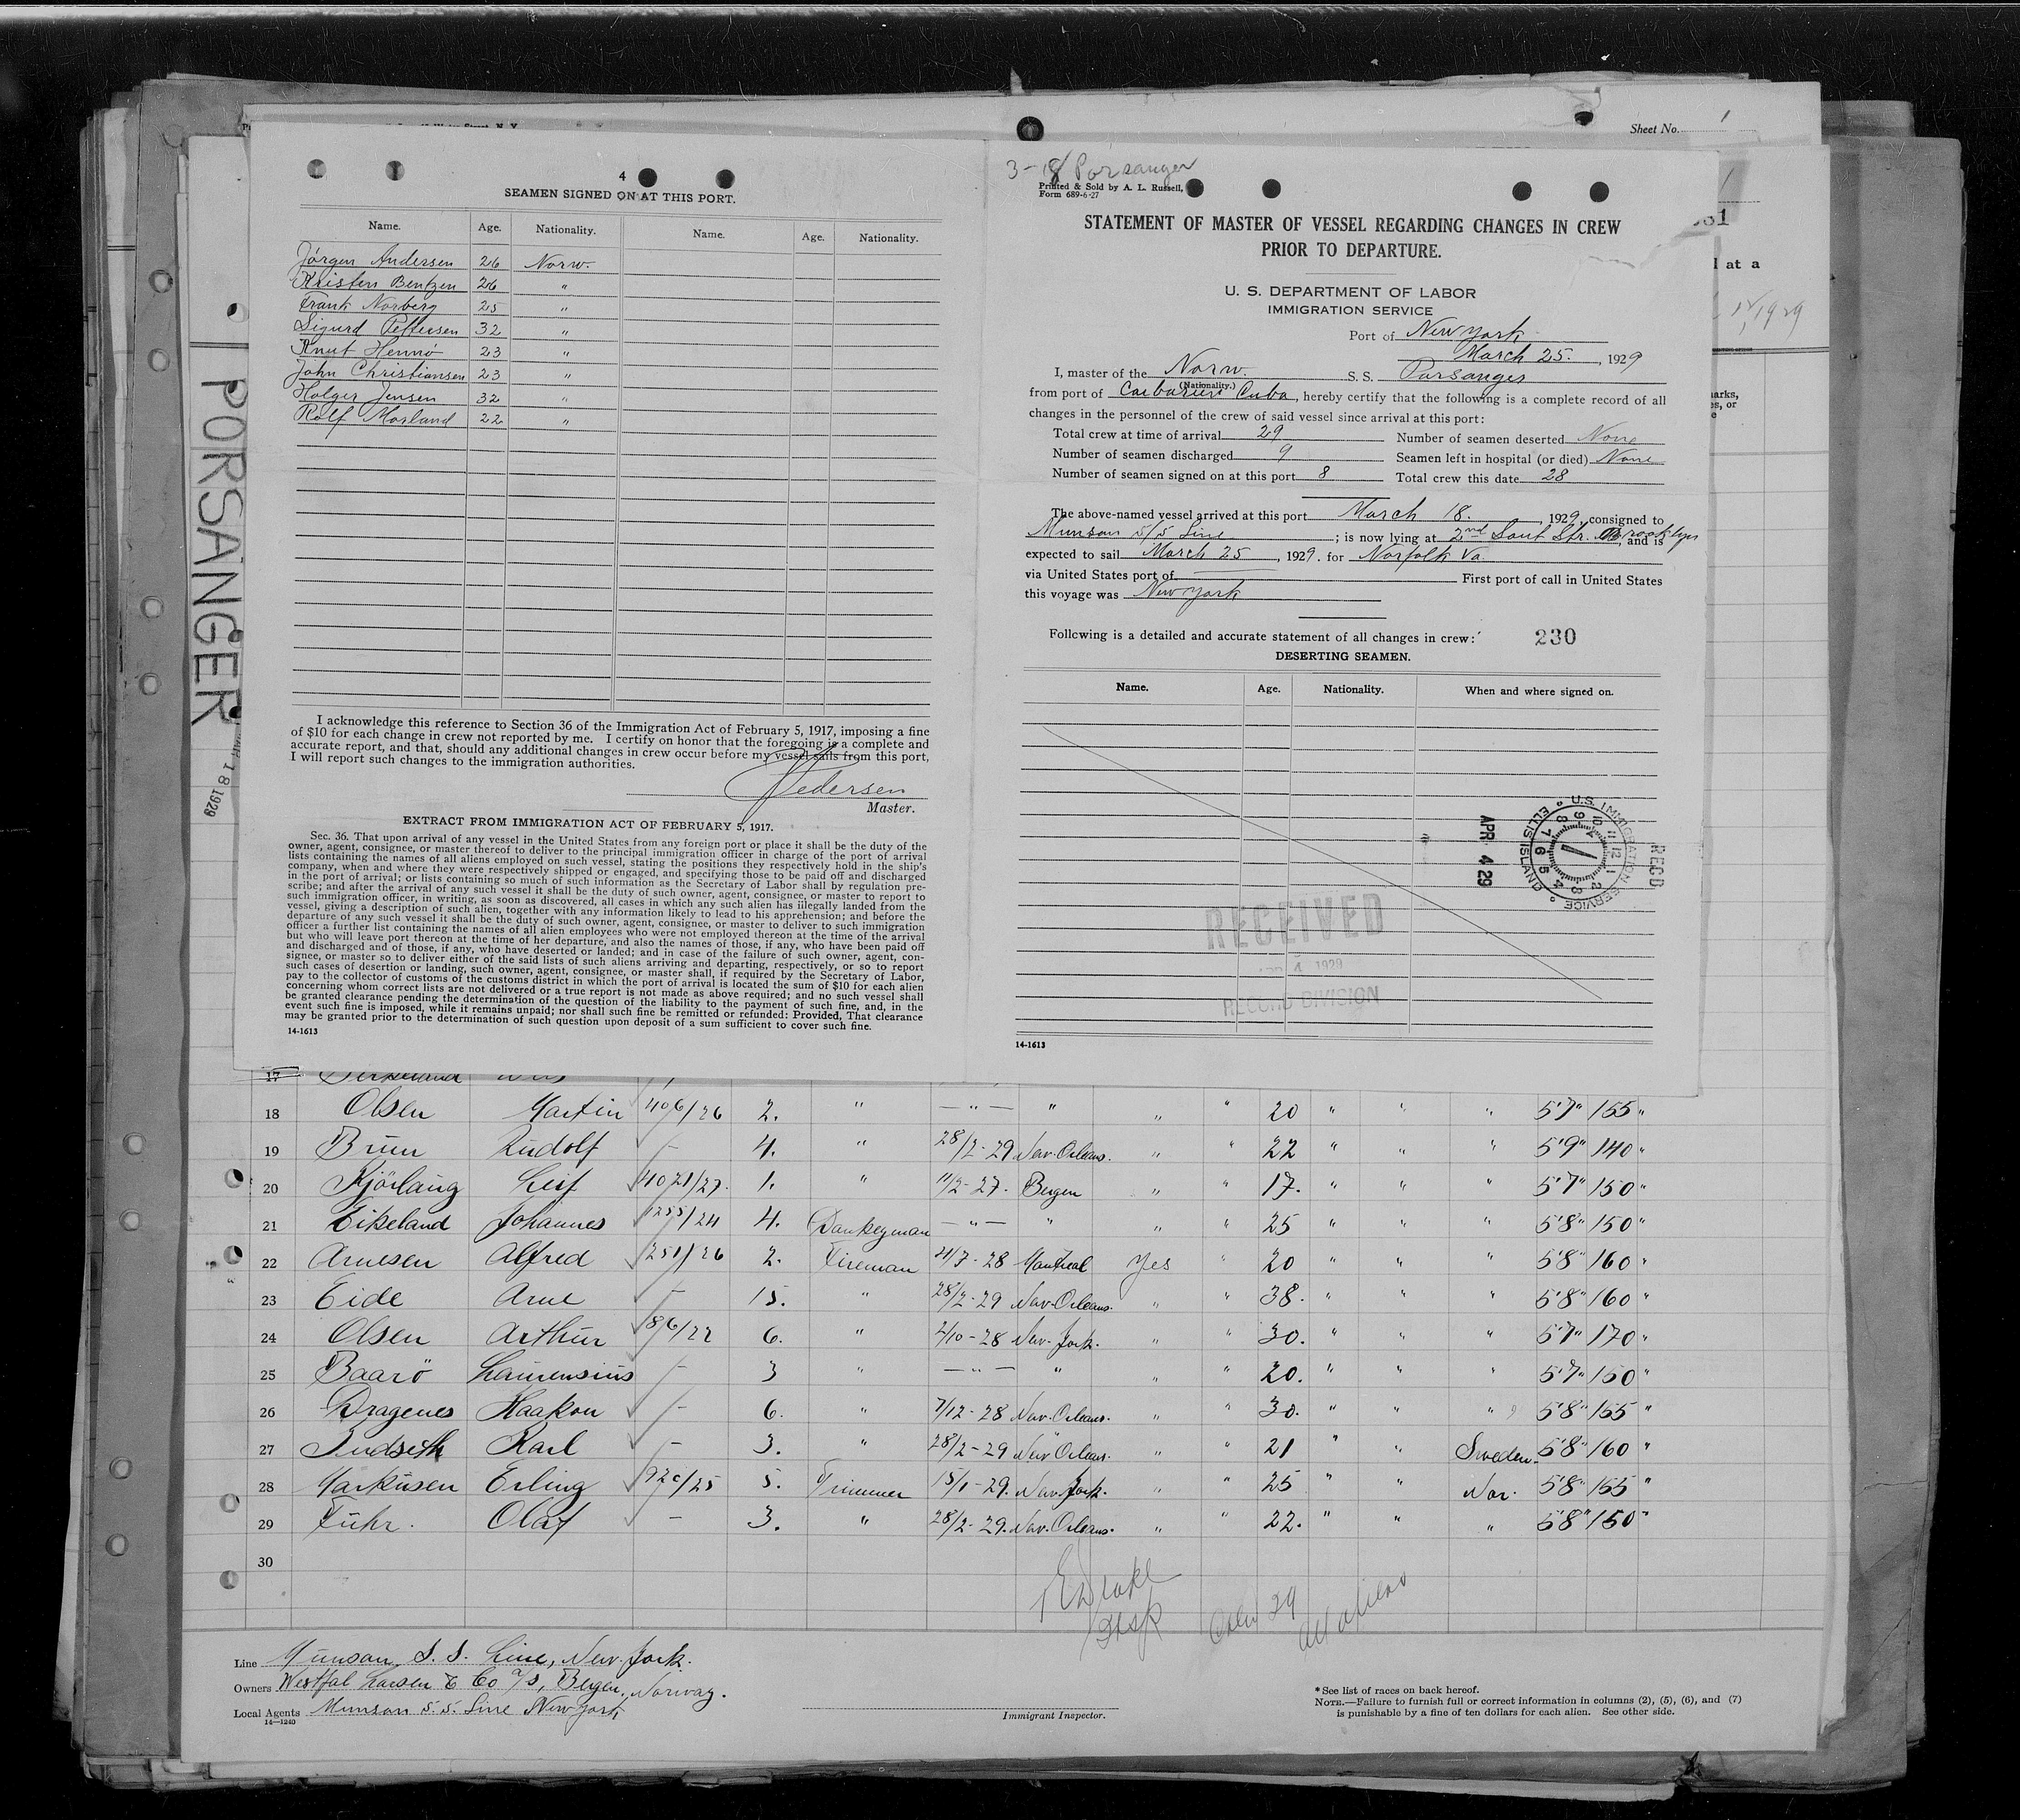 Sheet No. 1
4
SEAMEN SIGNED ON AT THIS PORT.
Name. Age. Nationality. Name. Age. Nationality.
Jörgen Andersen 26 Norw.
Kristen Bentzen 26 "
Frank Norberg 25 "
Sigurd Pettersen 32 "
Knut Hennö 23 "
John Christiansen 23 "
Holger Jensen 32 "
Rolf Mosland 22 "
I acknowledge this reference to Section 36 of the Immigration Act of February 5, 1917, imposing a fine
of $10 for each change in crew not reported by me. I certify on honor that the foregoing is a complete and
accurate report, and that, should any additional changes in crew occur before my vessel sails from this port,
I will report such changes to the immigration authorities.
Pedersen
Master.
EXTRACT FROM IMMIGRATION ACT OF FEBRUARY 5, 1917.
Sec. 36. That upon arrival of any vessel in the United States from any foreign port or place it shall be the duty of the
owner, agent, consignee, or master thereof to deliver to the principal immigration officer in charge of the port of arrival
lists containing the names of all aliens employed on such vessel, stating the positions they respectively hold in the ship's
company, when and where they were respectively shipped or engaged, and specifying those to be paid off and discharged
in the port of arrival; or lists containing so much of such information as the Secretary of Labor shall by regulation pre-
scribe; and after the arrival of any such vessel it shall be the duty of such owner, agent, consignee, or master to report to
such immigration officer, in writing, as soon as discovered, all cases in which any such alien has illegally landed from the
vessel, giving a description of such alien, together with any information likely to lead to his apprehension; and before the
departure of any such vessel it shall be the duty of such owner, agent, consignee, or master to deliver to such immigration
officer a further list containing the names of all alien employees who were not employed thereon at the time of the arrival
but who will leave port thereon at the time of her departure, and also the names of those, if any, who have been paid off
and discharged and of those, if any, who have deserted or landed; and in case of the failure of such owner, agent, con-
signee, or master so to deliver either of the said lists of such aliens arriving and departing, respectively, or so to report
such cases of desertion or landing, such owner, agent, consignee, or master shall, if required by the Secretary of Labor,
pay to the collector of customs of the customs district in which the port of arrival is located the sum of $10 for each alien
concerning whom correct lists are not delivered or a true report is not made as above required; and no such vessel shall
be granted clearance pending the determination of the question of the liability to the payment of such fine, and, in the
event such fine is imposed, while it remains unpaid; nor shall such fine be remitted or refunded: Provided, That clearance
may be granted prior to the determination of such question upon deposit of a sum sufficient to cover such fine.
14-1613
3-18 Porsanger
Printed & Sold by A. L. Russell,
Form 689-6-27
STATEMENT OF MASTER OF VESSEL REGARDING CHANGES IN CREW
PRIOR TO DEPARTURE.
U. S. DEPARTMENT OF LABOR
IMMIGRATION SERVICE
Port of New York
March 25., 1929
I, master of the Norw. S. S. Porsanges
(Nationality.)
from port of Caibarien Cuba, hereby certify that the following is a complete record of all
changes in the personnel of the crew of said vessel since arrival at this port:
Total crew at time of arrival 29 Number of seamen deserted None
Number of seamen discharged 9 Seamen left in hospital (or died) None
Number of seamen signed on at this port 8 Total crew this date 28
The above-named vessel arrived at this port March 18., 1929, consigned to
Munson S/S Line; is now lying at 2nd Sout Str. Brooklyn, and is
expected to sail March 25, 1929. for Norfolk Va.
via United States port of First port of call in United States
this voyage was New York
Following is a detailed and accurate statement of all changes in crew:
230
DESERTING SEAMEN.
Name. Age. Nationality. When and where signed on.
REC'D
U.S. IMMIGRATION SERVICE ELLIS ISLAND
APR 4 29
RECEIVED
APR 4 1929
RECORD DIVISION
14-1613
PORSANGER
18 1929
at a
1929
17
18 Olsen Martin 406/26 2. " — " — " " " 20 " " " 5'7" 155 "
19 Brun Rudolf - 4. " 28/2-29 New-Orleans. " " 22 " " " 5'9" 140 "
20 Kjörlaug Leif 4071/27. 1. " 11/2-27. Bergen " " 17. " " " 5'7" 150 "
21 Eikeland Johannes 1255/24 4. Donkeyman — " — " " " 25 " " " 5'8" 150 "
22 Arnesen Alfred 1251/26 2. Fireman 21/7-28 Montreal Yes " 20 " " " 5'8" 160 "
23 Eide Arne - 15. " 28/2-29 New-Orleans. " " 38. " " " 5'8" 160 "
24 Olsen Arthur 86/22 6. " 2/10-28 New-York. " " 30. " " " 5'7" 170 "
25 Baarö Laurensius - 3 " — " — " " " 20. " " " 5'7" 150 "
26 Dragenes Haakon - 6. " 7/12-28 New-Orleans. " " 30. " " " 5'8" 155 "
27 Indseth Karl - 3. " 28/2-29 New Orleans. " " 21 " " Sweden. 5'8" 160 "
28 Markusen Erling 920/25 5. Trimmer 15/1-29. New-York. " " 25 " " Nor. 5'8" 155 "
29 Fuhr. Olaf - 3. " 28/2-29. New-Orleans. " " 22. " " " 5'8" 150 "
30
Line Munson S. S. Line, New-York.
Owners Westfal Larsen & Co a/s, Bergen, Norway.
Local Agents Munson S. S. Line New York
14—1240
Immigrant Inspector.
* See list of races on back hereof.
NOTE.—Failure to furnish full or correct information in columns (2), (5), (6), and (7)
is punishable by a fine of ten dollars for each alien. See other side.